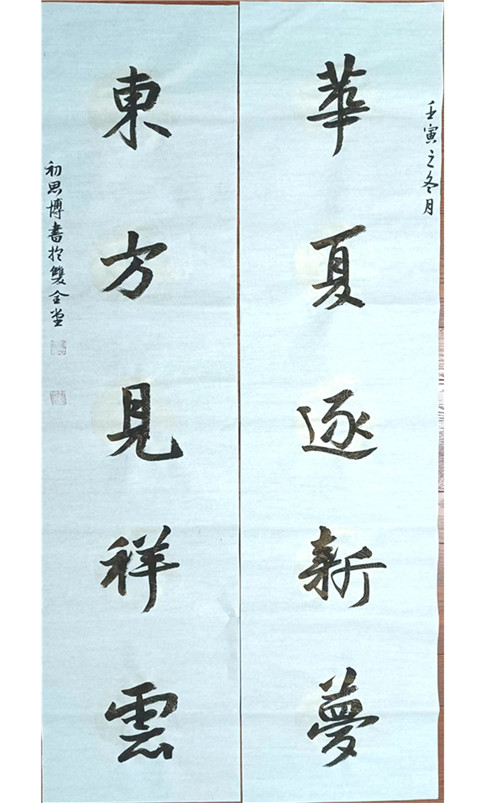 壬寅之冬月
華夏逐新夢
東方見祥雲
初思博書於雙全堂